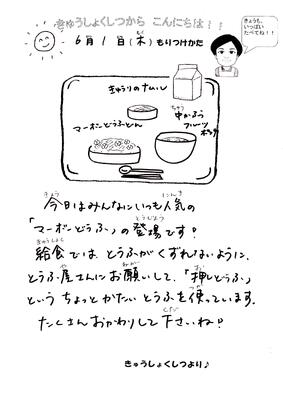 きゅうしょくしつから こんにちは！！
きょうも、
いっぱい
たべてね！！
6月1日(木) もりつけかた
きゅうりのナムル
ちゅう
中かふう
フルーツ
ポンチ
マーボーどうふどん
きょう にんき
今日はみんなにいつも人気の
とうじょう
「マーボーどうふ」の登場です！
きゅうしょく
給食では とうふがくずれないように、
や ねが お
とうふ屋さんにお願いして、「押しどうふ」
つか
という ちょっとかたい とうふを使っています。
くだ
たくさんおかわりして下さいね！
きゅうしょくしつより♪